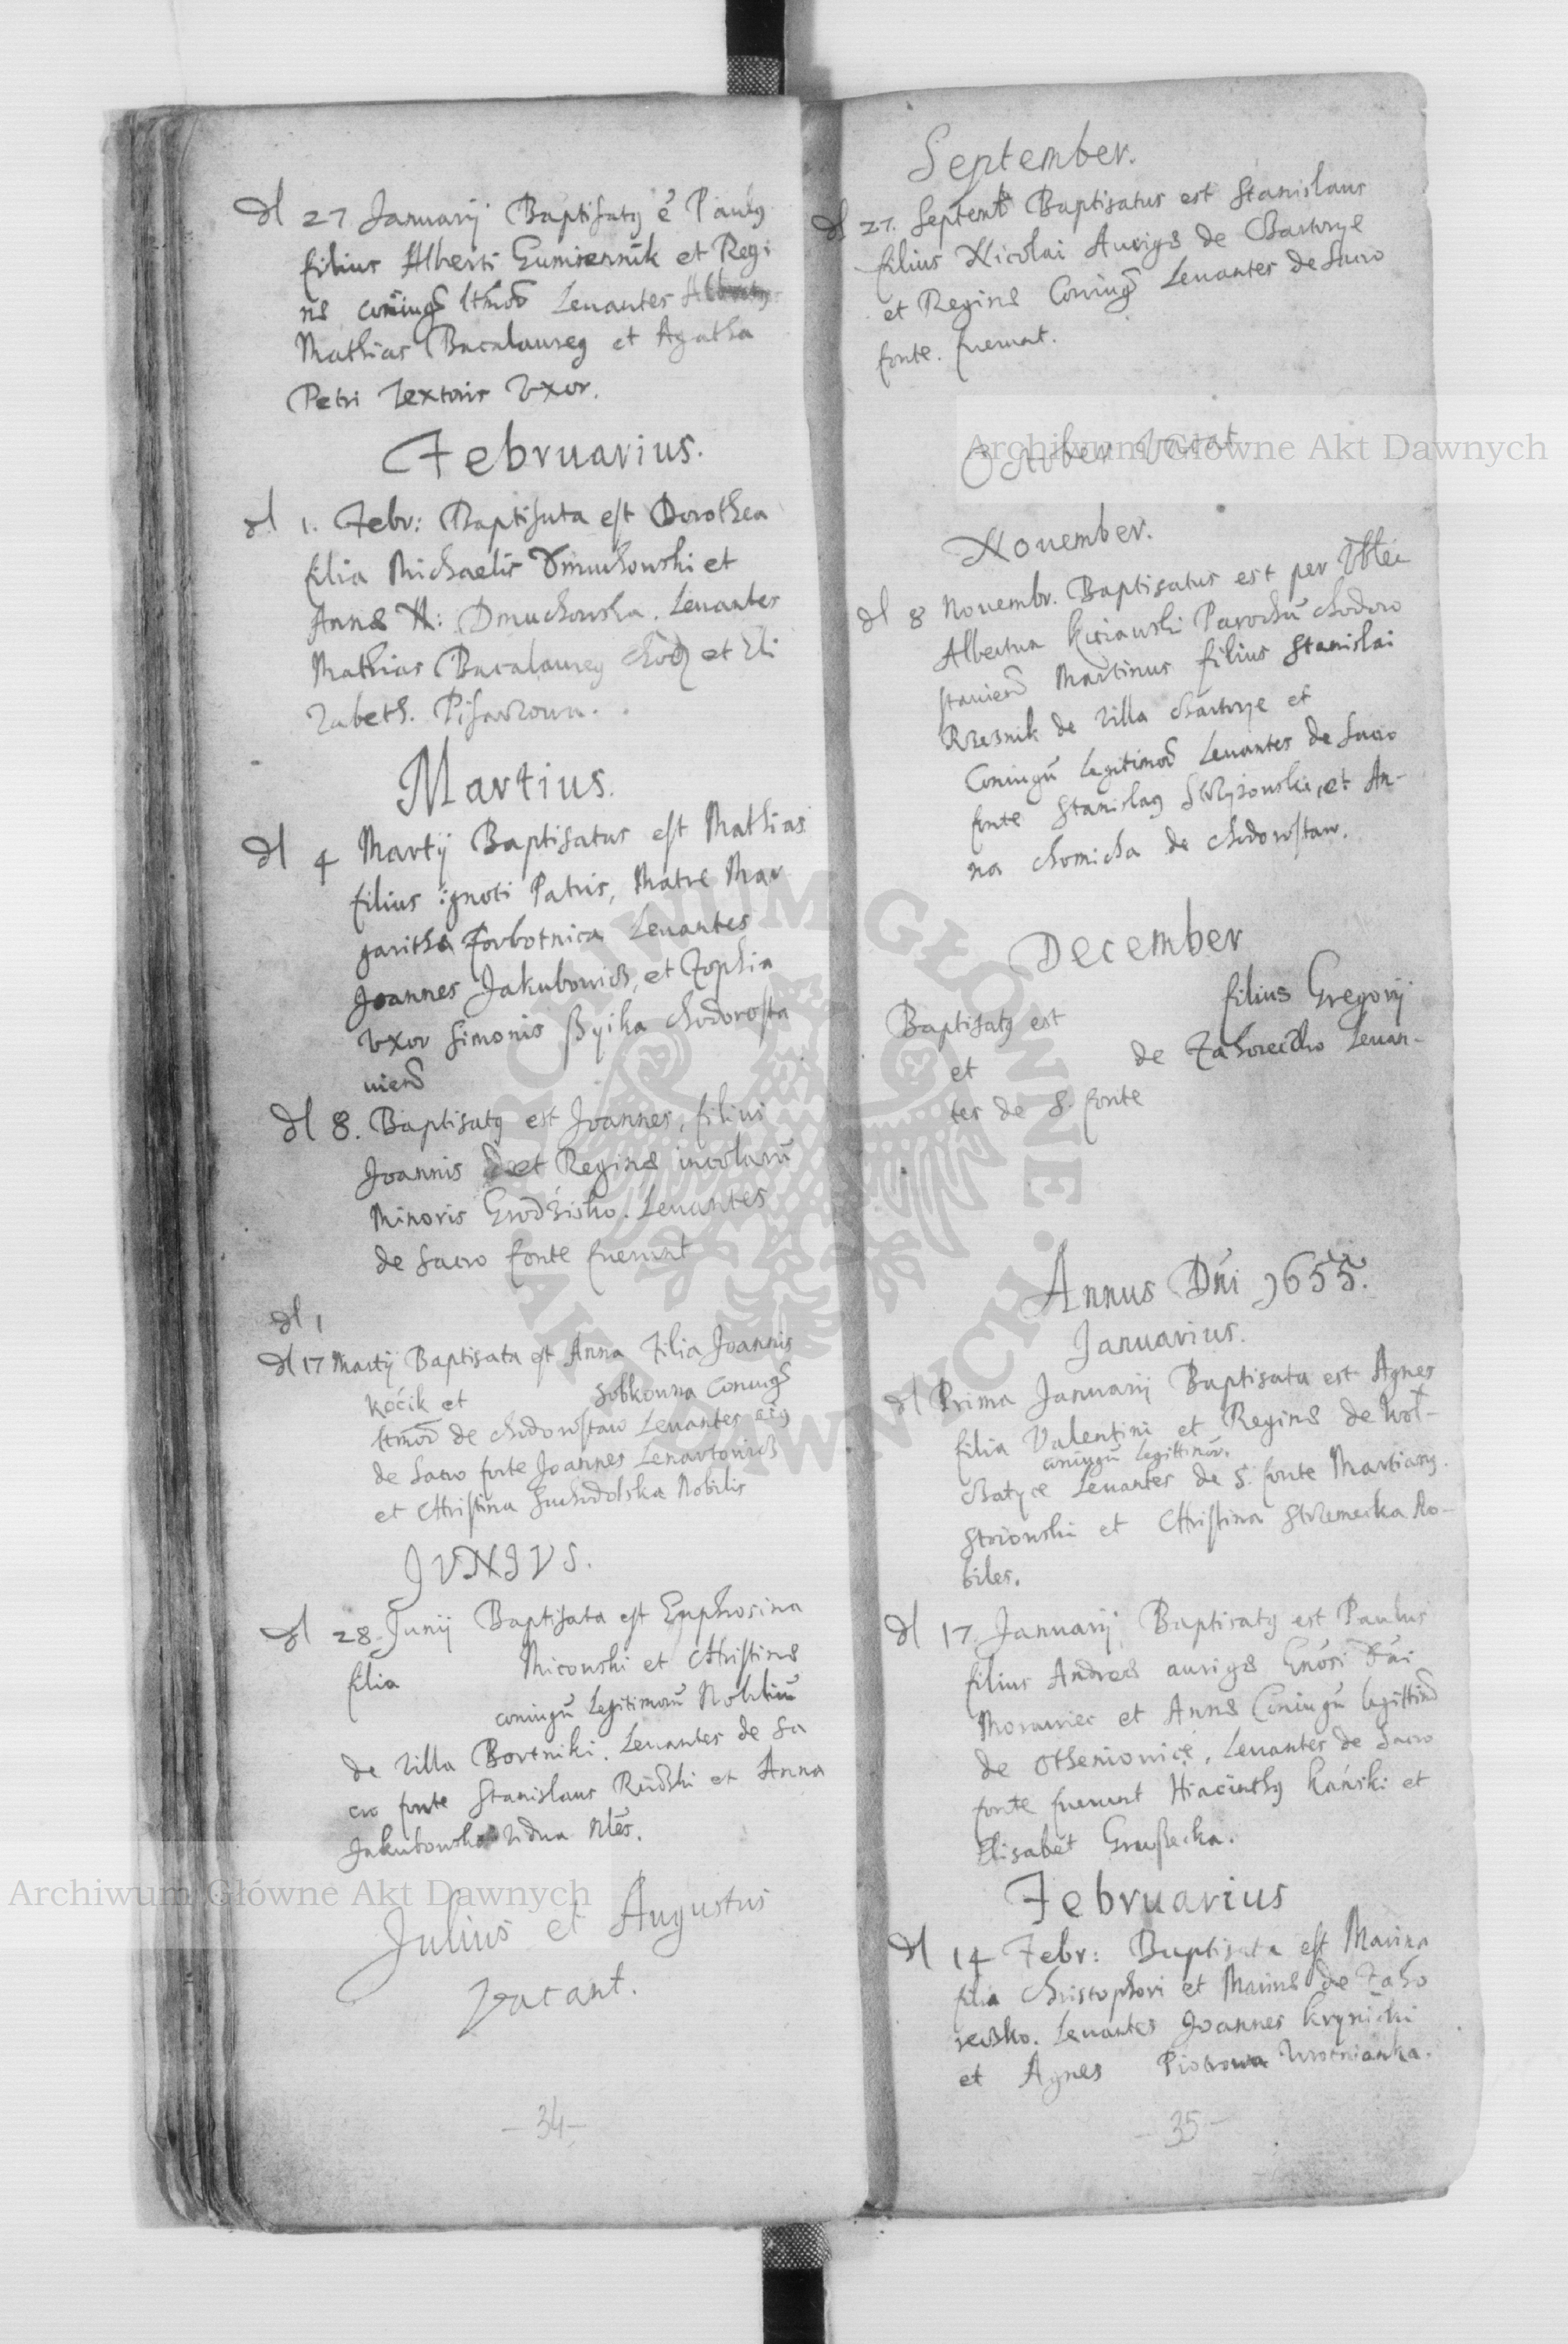 dl 27 Januarij Baptisatq ē Paulq
filius Alberti Gumiennik et Regi
næ coniugū ltmorū Leuantes
Mathias Bacalaureq et Agatha
Petri Textoris Vxor.
Februarius.
dl 1. Febr: Baptisata est Dorothea
filia Michaelis Dmuchowski et
Annæ N: Dmuchowska. Leuantes
Mathias Bacalaureq chod et Eli
zabeth. Pisarzowa.
Martius.
dl 4 Martij Baptisatus est Mathias
filius ignoti Patris, Matre Mar
garitha Forbotnica Leuantes
Joannes Jakubowicz, et Zophia
Vxor Simonis Byika chodorosta
uien
dl 8. Baptisatq est Joannes, filius
Joannis et Reginæ incolarū
Minoris Grodzisko. Leuantes
de Sacro fonte fuerunt
dl 1
dl 17 Martij Baptisata est Anna Filia Joannis
Kocik et Sobkowna Coniugū
ltmorū de chodorostaw Leuantes eiq
de Sacro fonte Joannes Lenartowicz
et Christina Suchodolska Nobilis
JVNIVS.
dl 28. Junij Baptisata est Euphrosina
filia Micowski et Christinæ
coniugū Legitimorū Nobiliū
de Villa Bortniki. Leuantes de Sa
cro fonte Stanislaus Rudzki et Anna
Jakubowska Vidua Nles.
Julius et Augustus
Vacant.
- 34 -
September.
dl 27. Septemb Baptisatus est Stanislaus
filius Nicolai Aurigæ de Bartorye
et Reginæ Coniugū Leuantes de Sacro
fonte. fuerunt.
October Vacat.
November.
dl 8 Nouembr. Baptisatus est per
Albertum Kiciawski Parochū chodoro
stauien Martinus filius Stanislai
Rzeznik de Villa et
Coniugū Legitimorū Leuantes de Sacro
fonte Stanislaq et An-
na chomicha de chodorostaw.
December
Baptisatq est filius Gregorij
et de Zahoreczko Leuan-
tes de S. fonte
Annus Dńi 1655.
Januarius.
dl Prima Januarij Baptisata est Agnes
filia Valentini et Reginæ de Woł-
coniugū legittimor.
czatycze Leuantes de S. fonte Martianq
et Christina Strzemecka No-
biles.
dl 17. Januarij Baptisatq est Paulus
filius Andreæ aurigæ Gnosi Dńi
Morawiec et Annæ Coniugū legittimorū
de Otheniowice. Leuantes de Sacro
fonte fuerunt Hiacinthq Kański et
Elisabet Gruszecka.
Februarius
dl 14 Febr: Baptisata est Marina
filia Christophori et Marinæ de Zaho
reczko. Leuantes Joannes Krynicki
et Agnes Piotrowa Wrotnianka.
- 35 -
Archiwum Główne Akt Dawnych
Archiwum Główne Akt Dawnych
ARCHIWUM GŁÓWNE · AKT DAWNYCH ·